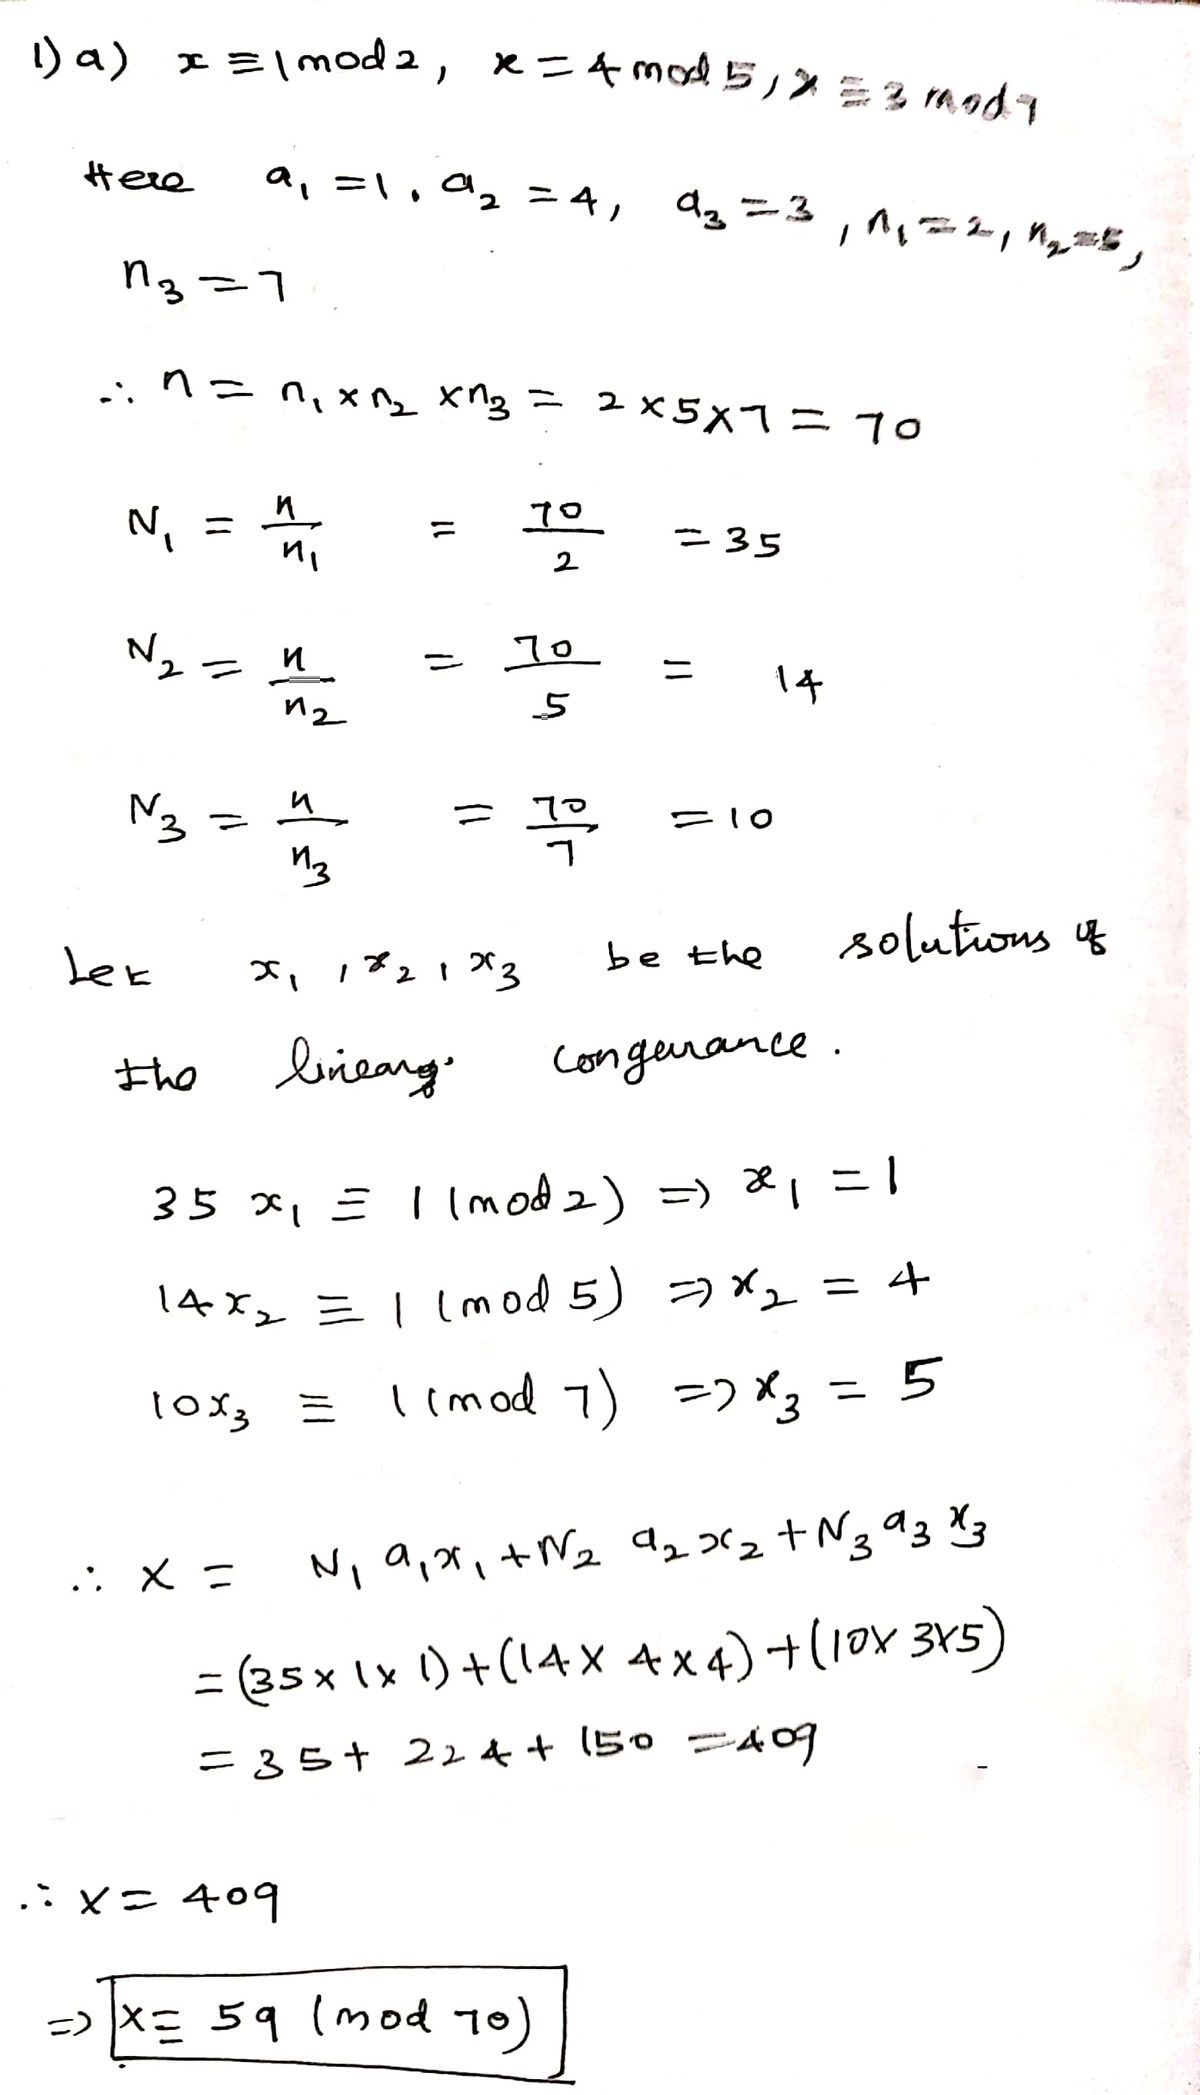 1) a) x ≡ 1 mod 2, x = 4 mod 5, x ≡ 3 mod 7
Here a₁ = 1, a₂ = 4, a₃ = 3, n₁ = 2, n₂ = 5,
n₃ = 7
∴ n = n₁ × n₂ × n₃ = 2 × 5 × 7 = 70
N₁ = n/n₁ = 70/2 = 35
N₂ = n/n₂ = 70/5 = 14
N₃ = n/n₃ = 70/7 = 10
Let x₁, x₂, x₃ be the solutions of
the linear congurance.
35 x₁ ≡ 1 (mod 2) => x₁ = 1
14 x₂ ≡ 1 (mod 5) => x₂ = 4
10 x₃ ≡ 1 (mod 7) => x₃ = 5
∴ x = N₁ a₁ x₁ + N₂ a₂ x₂ + N₃ a₃ x₃
= (35 × 1 × 1) + (14 × 4 × 4) + (10 × 3 × 5)
= 35 + 224 + 150 = 409
∴ x = 409
=> x ≡ 59 (mod 70)